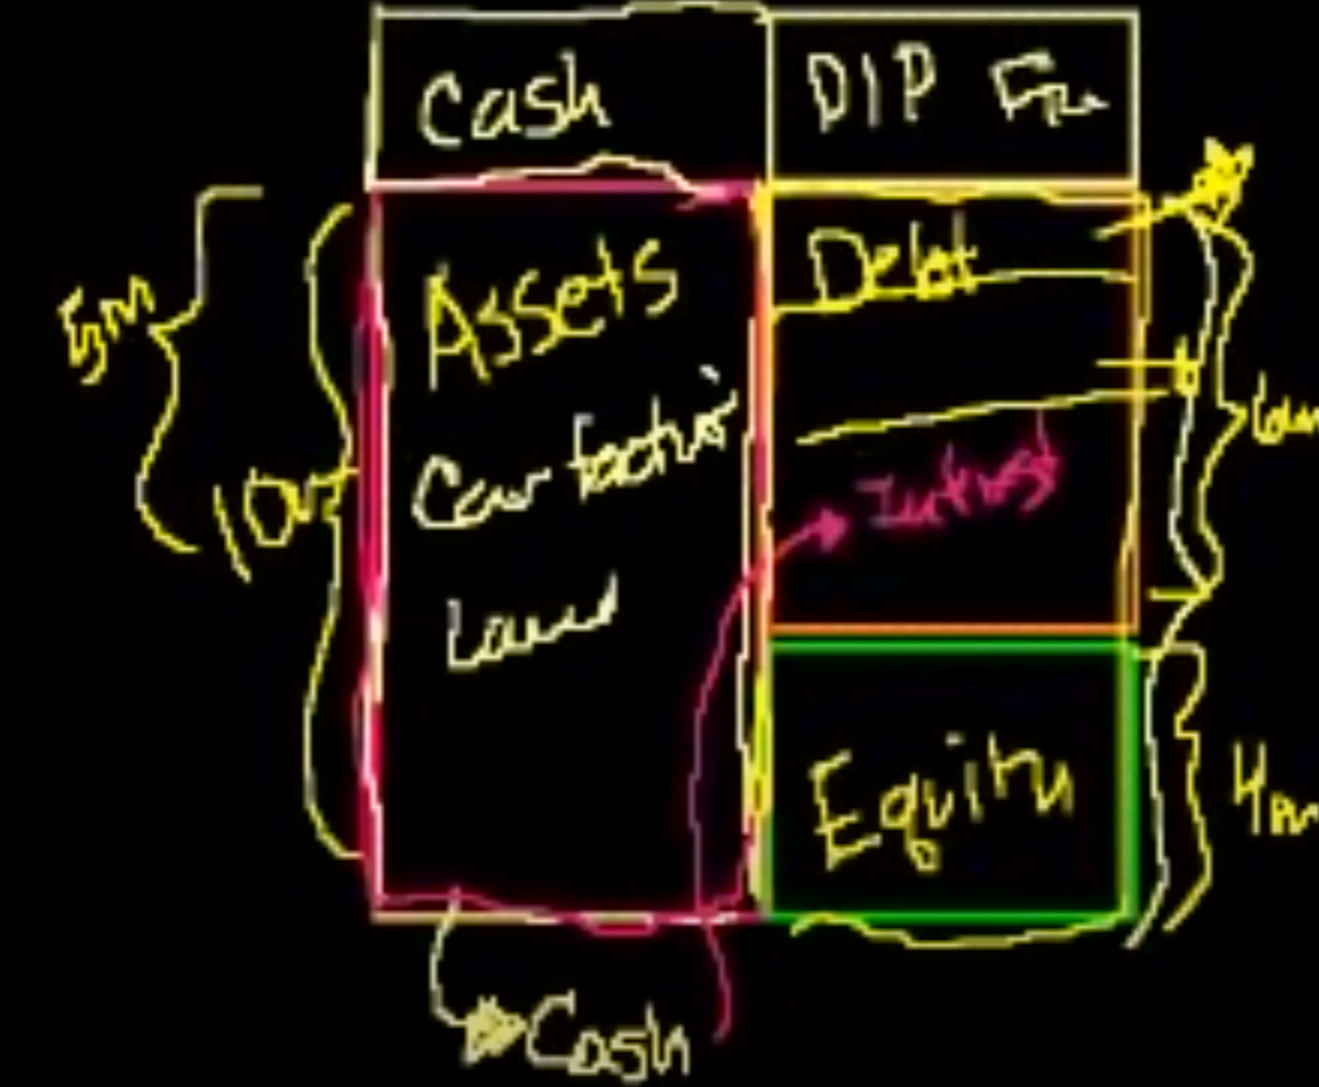 Cash
DIP Fin
5m
10m
Assets
Car factori
Land
Debt
Interest
6m
Equity
4m
Cash